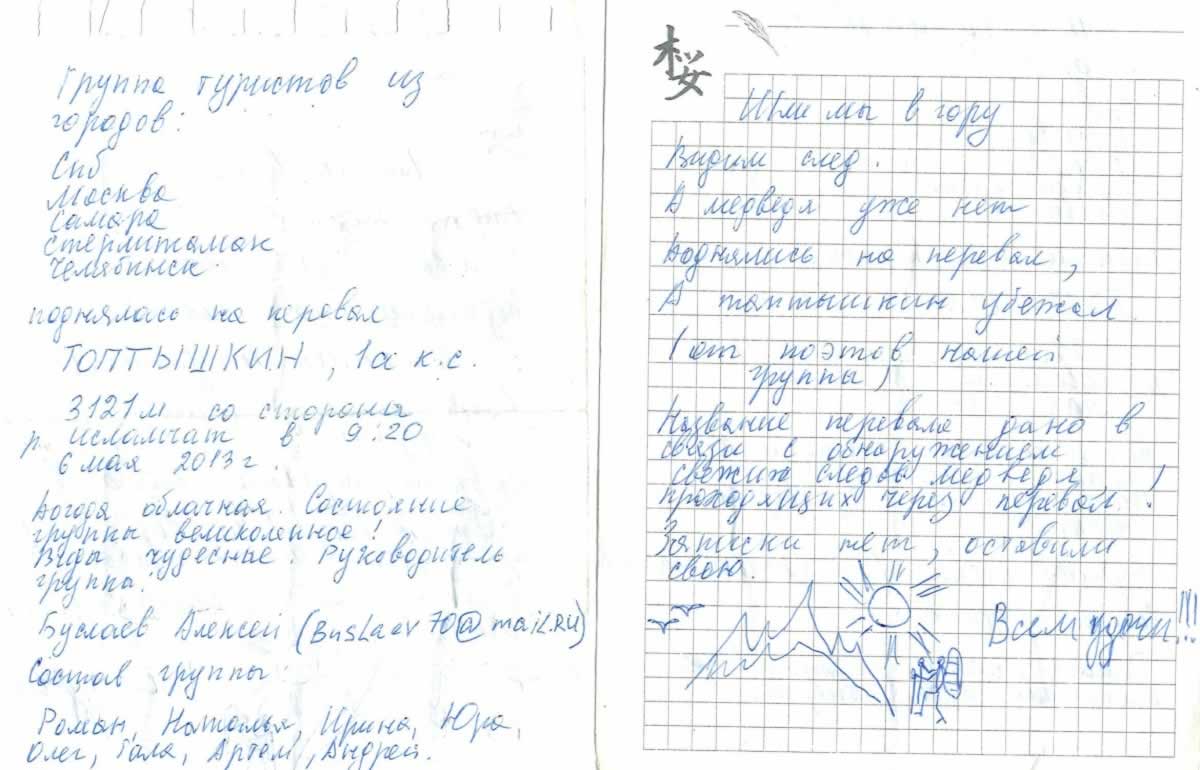 Группа туристов из
городов:
Спб
Москва
Самара
Стерлитамак
Челябинск.
поднялась на перевал
ТОПТЫШКИН, 1а к.с.
3121м со стороны
р. Исламчат в 9:20
6 мая 2013 г.
Погода облачная. Состояние
группы великолепное!
Виды чудесные. Руководитель
группы:
Буслаев Алексей (Buslaev70@mail.RU)
Состав группы:
Роман, Наталья, Ирина, Юра,
Олег, Гала, Артём, Андрей.
桜
Шли мы в гору
Видим след.
А медведя уже нет
Поднялись на перевал,
А топтышкин убежал
(от поэтов нашей
группы)
Название перевала дано в
связи с обнаружением
свежих следов медведя
проходящих через перевал!
Записки нет, оставили
свою.
Всем удачи!!!